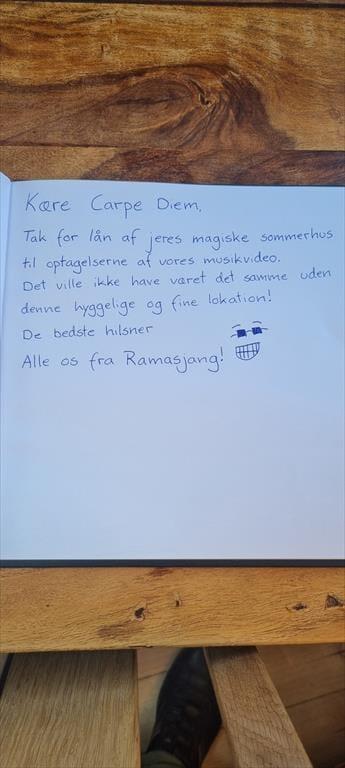 Kære Carpe Diem,
Tak for lån af jeres magiske sommerhus
til optagelserne af vores musikvideo.
Det ville ikke have været det samme uden
denne hyggelige og fine lokation!
De bedste hilsner
Alle os fra Ramasjang!